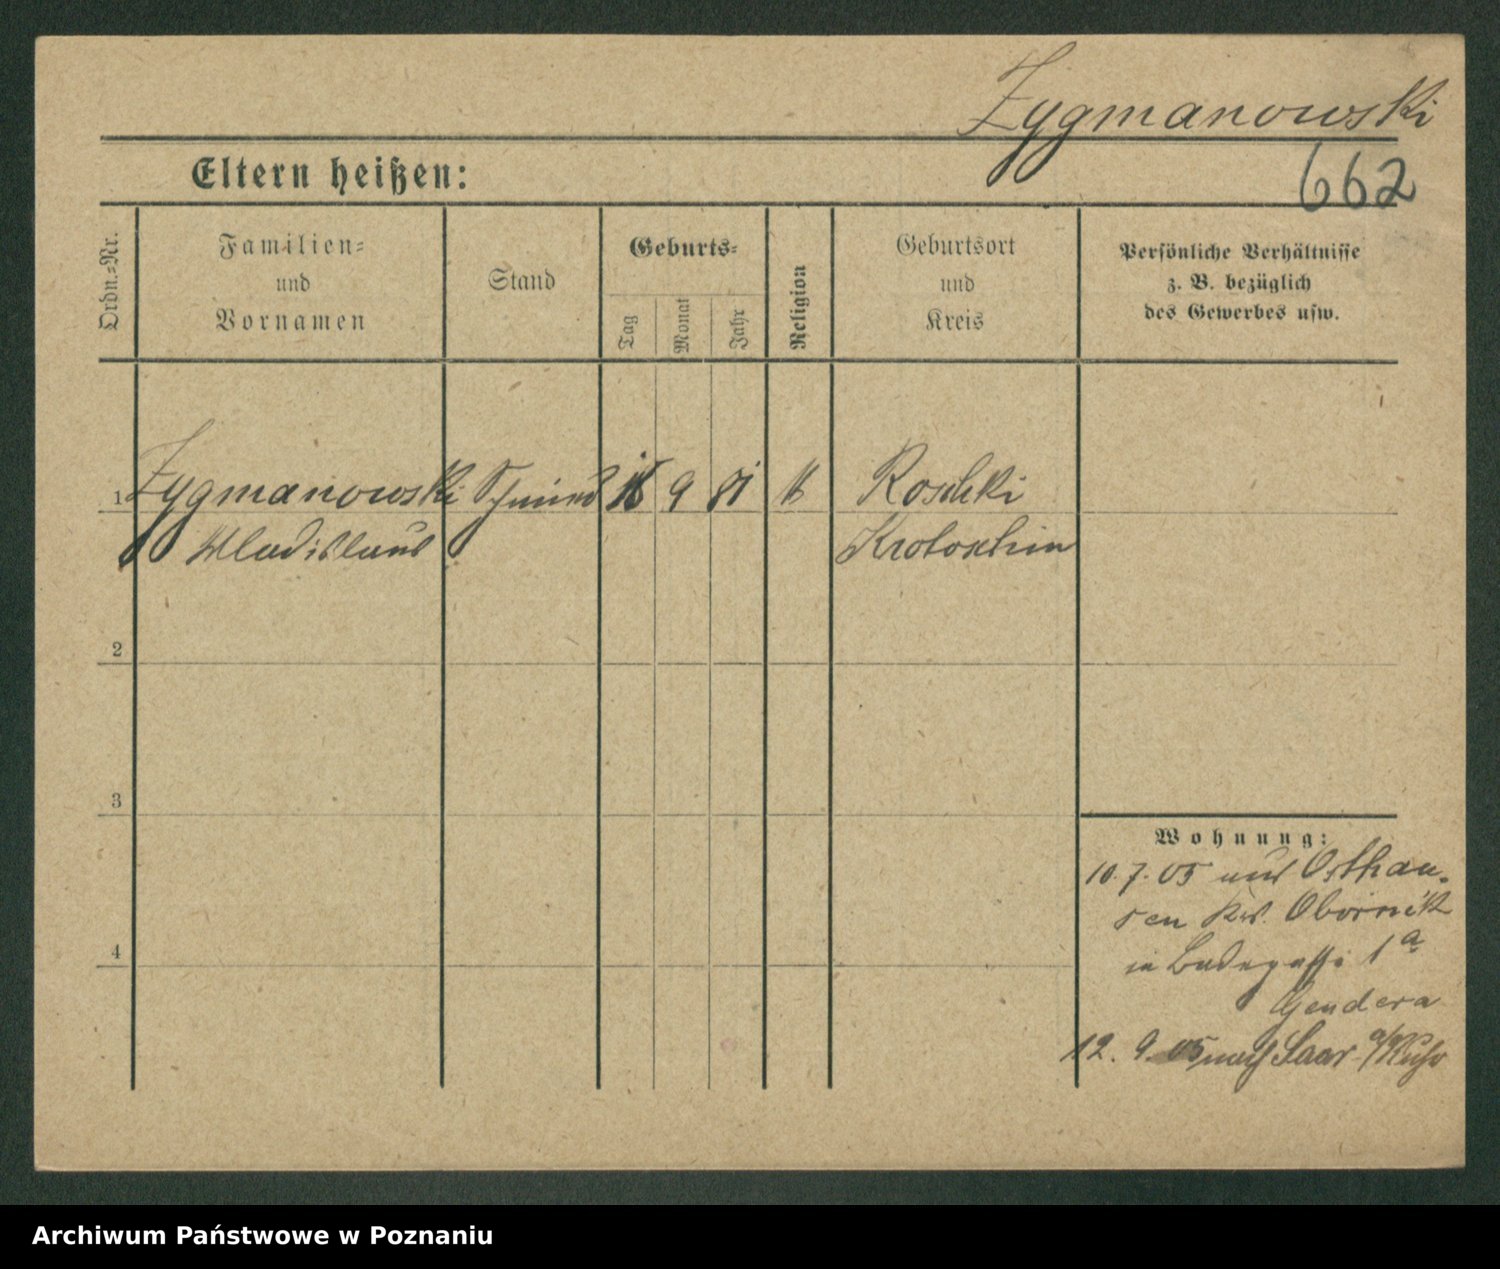 Zygmanowski
Eltern heißen:
662
Ordn.=Nr.
Familien=
und
Vornamen
Stand
Geburts=
Tag
Monat
Jahr
Religion
Geburtsort
und
Kreis
Persönliche Verhältnisse
z. B. bezüglich
des Gewerbes usw.
1 Zygmanowski Schmied 9 81 k Roschki
Wladislaus Krotoschin
2
3
4
Wohnung:
10.7.05 aus Osthau-
sen Krs. Obornik
in Badegasse 1a
Gendera
12. 9. 05 nach Saar a/Ruhr
Archiwum Państwowe w Poznaniu